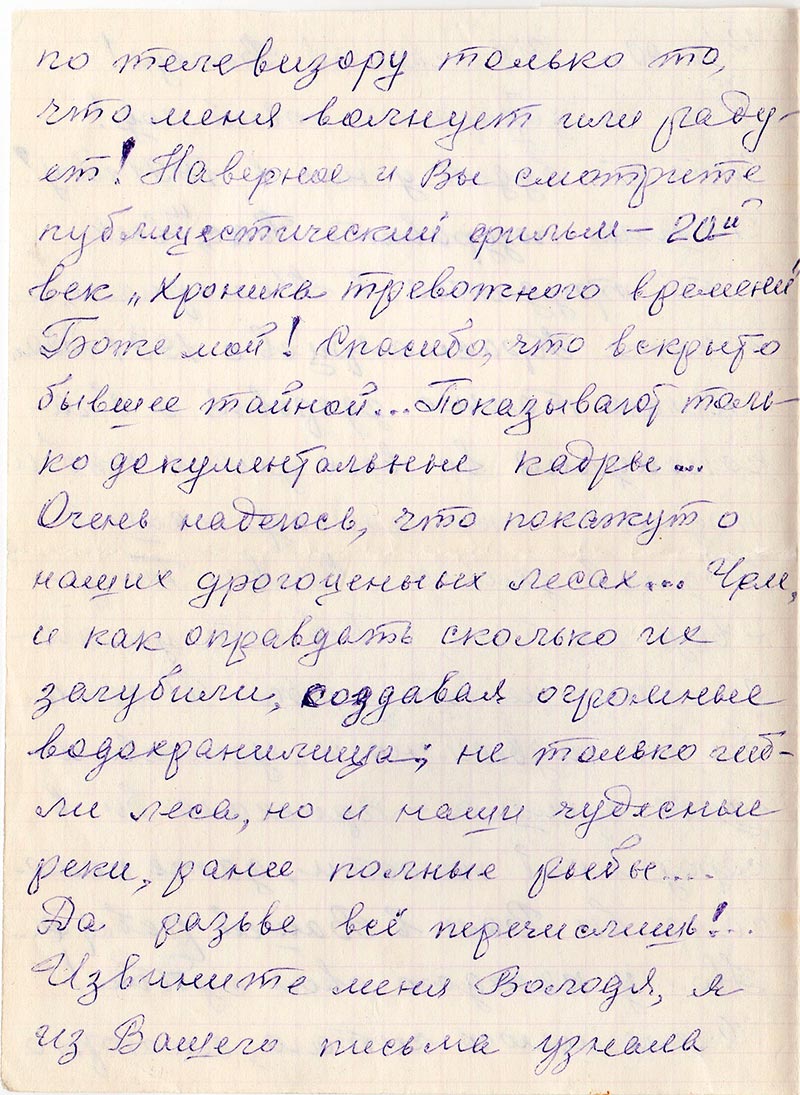 по телевизору только то,
что меня волнует или раду-
ет! Наверное и Вы смотрите
публицестический фильм – 20й
век „Хроника тревожного времени"
Боже мой! Спасибо, что вскрыто
бывшее тайной... Показывают толь-
ко документальные кадры...
Очень надеюсь, что покажут о
наших дрогоценных лесах... Чем,
и как оправдать сколько их
загубили, создавая огромные
водохранилища; не только гиб-
ли леса, но и наши чудесные
реки, ранее полные рыбы....
Да разьве всё перечислишь!..
Извините меня Володя, я
из Вашего письма узнала